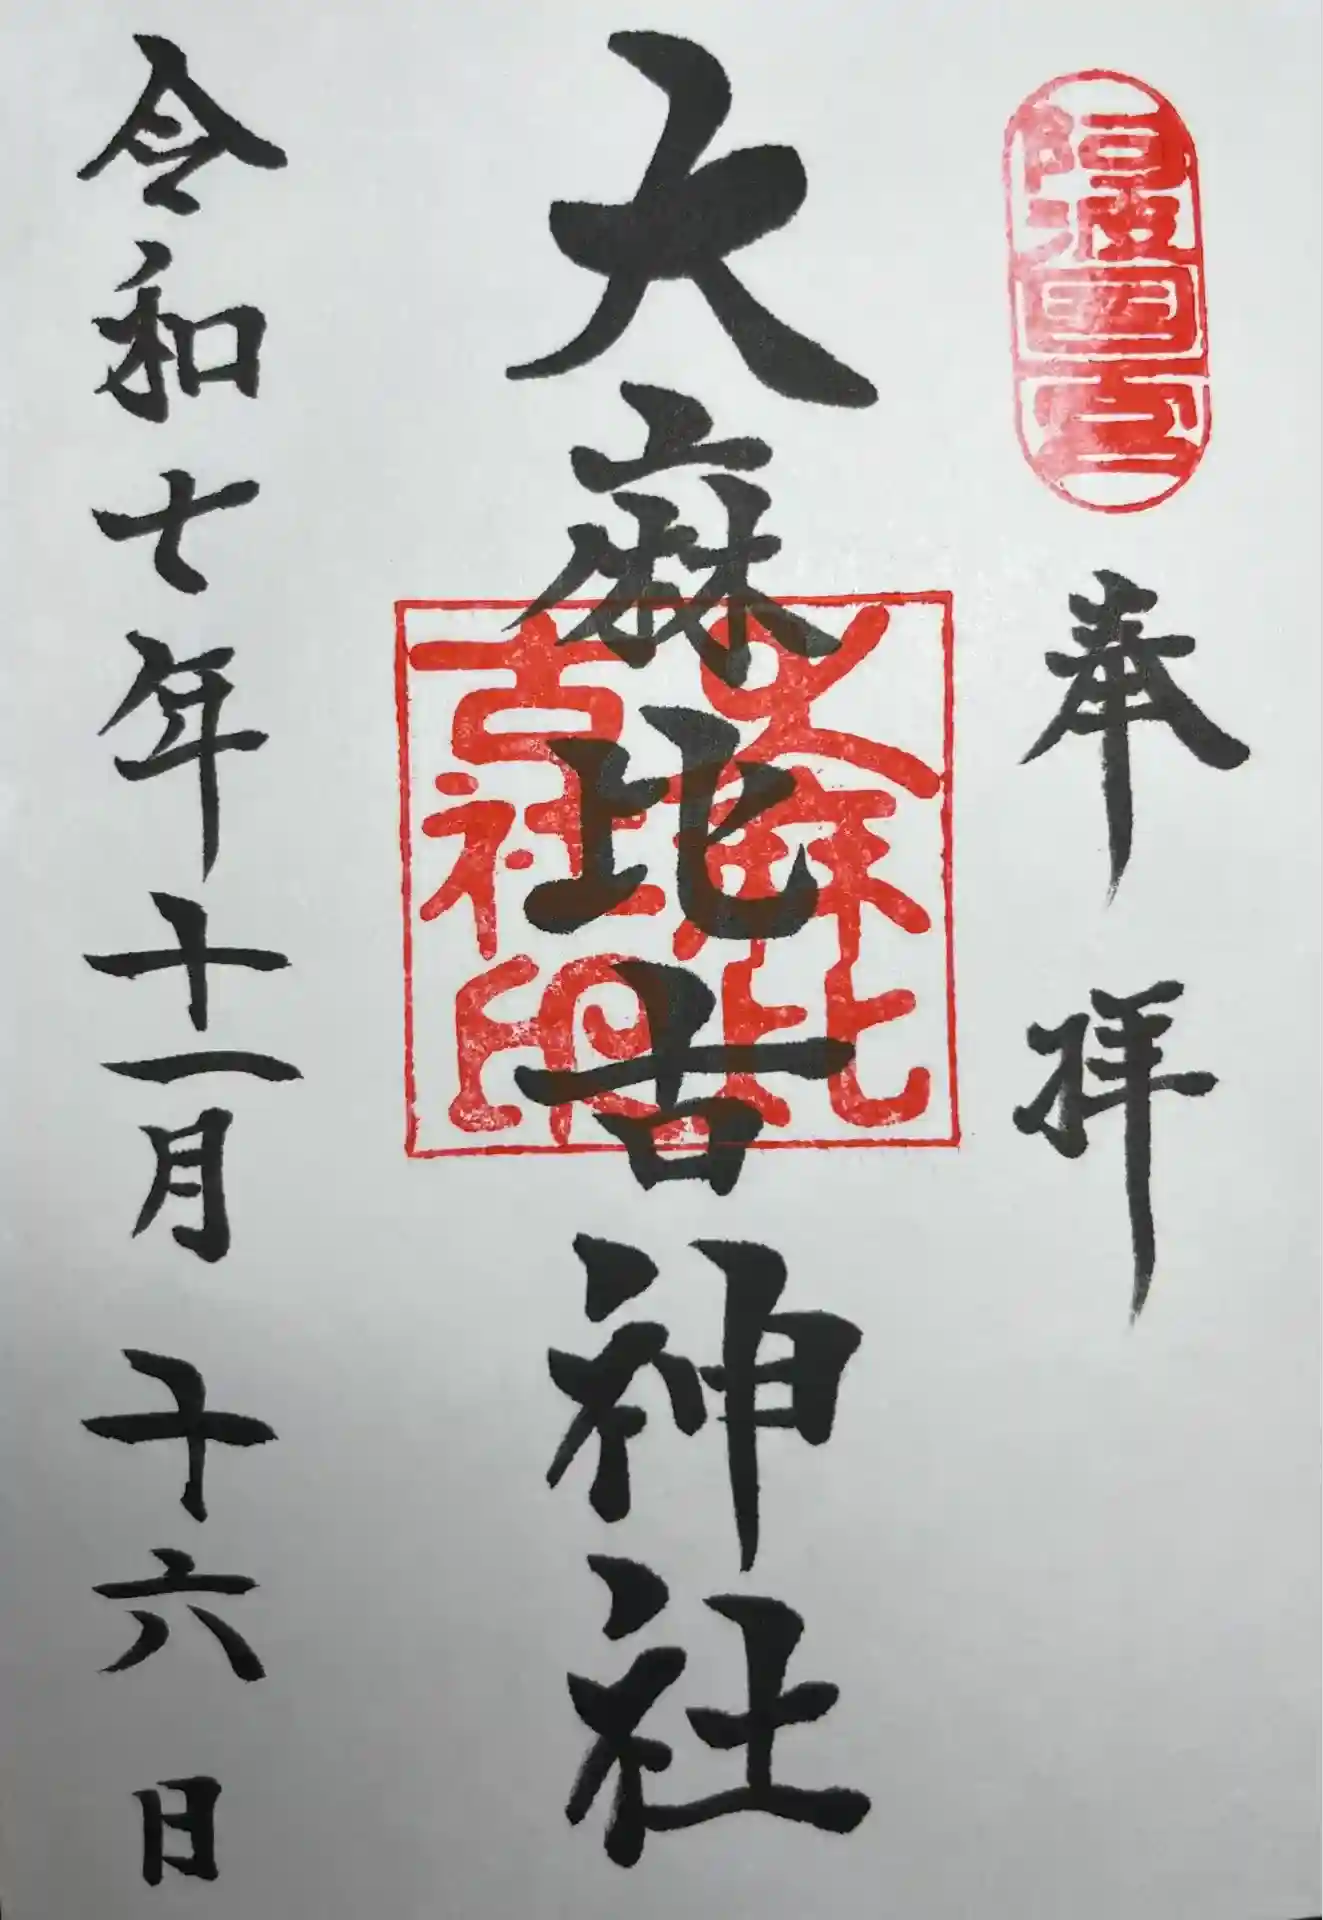 阿波国一宮
奉拝
大麻比古神社
大麻比古社印
令和七年十一月十六日